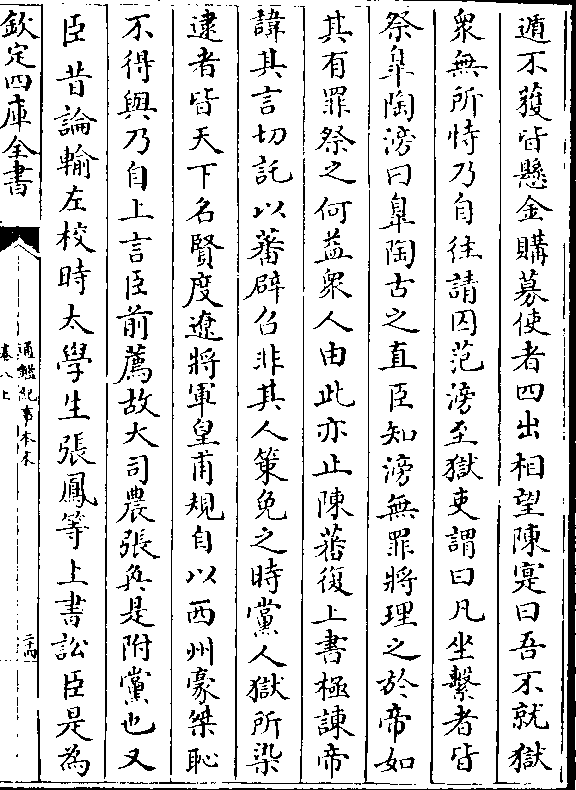 遁不獲皆懸金購募使者四出相望陳寔曰吾不就獄
衆無所恃乃自往請囚范滂至獄吏謂曰凡坐繫者皆
祭臯陶滂曰臯陶古之直臣知滂無罪將理之於帝如
其有罪祭之何益衆人由此亦止陳蕃復上書極諫帝
諱其言切託以蕃辟召非其人策免之時黨人獄所染
逮者皆天下名賢度遼將軍皇甫規自以西州豪桀恥
不得與乃自上言臣前薦故大司農張奐是附黨也又
臣昔論輸左校時太學生張鳳等上書訟臣是為
欽定四庫全書
通鑑紀事本末
卷八上